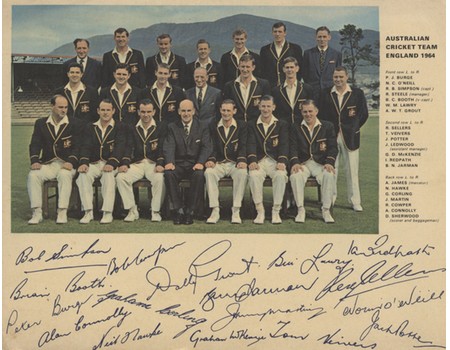 AUSTRALIAN
CRICKET TEAM
ENGLAND 1964
Front row L. to R.
P. J. BURGE
N. C. O'NEILL
R. B. SIMPSON (capt.)
R. STEELE (manager)
B. C. BOOTH (v. capt.)
W. M. LAWRY
A. W. T. GROUT
Second row L. to R.
R. SELLERS
T. VEIVERS
J. POTTER
J. LEDWOOD
(assistant manager)
G. D. McKENZIE
I. REDPATH
B. N. JARMAN
Back row L. to R.
A. JAMES (masseur)
N. HAWKE
G. CORLING
J. MARTIN
R. COWPER
A. CONNOLLY
D. SHERWOOD
(scorer and baggageman)
Bob Simpson Bob Cowper Wally Grout Bill Lawry Ian Redpath
Brian Booth Barry Jarman Rex Sellers
Peter Burge Graham Corling Johnny Martin Norm O'Neill
Alan Connolly Jack Potter
Neil Hawke Graham McKenzie Tom Veivers